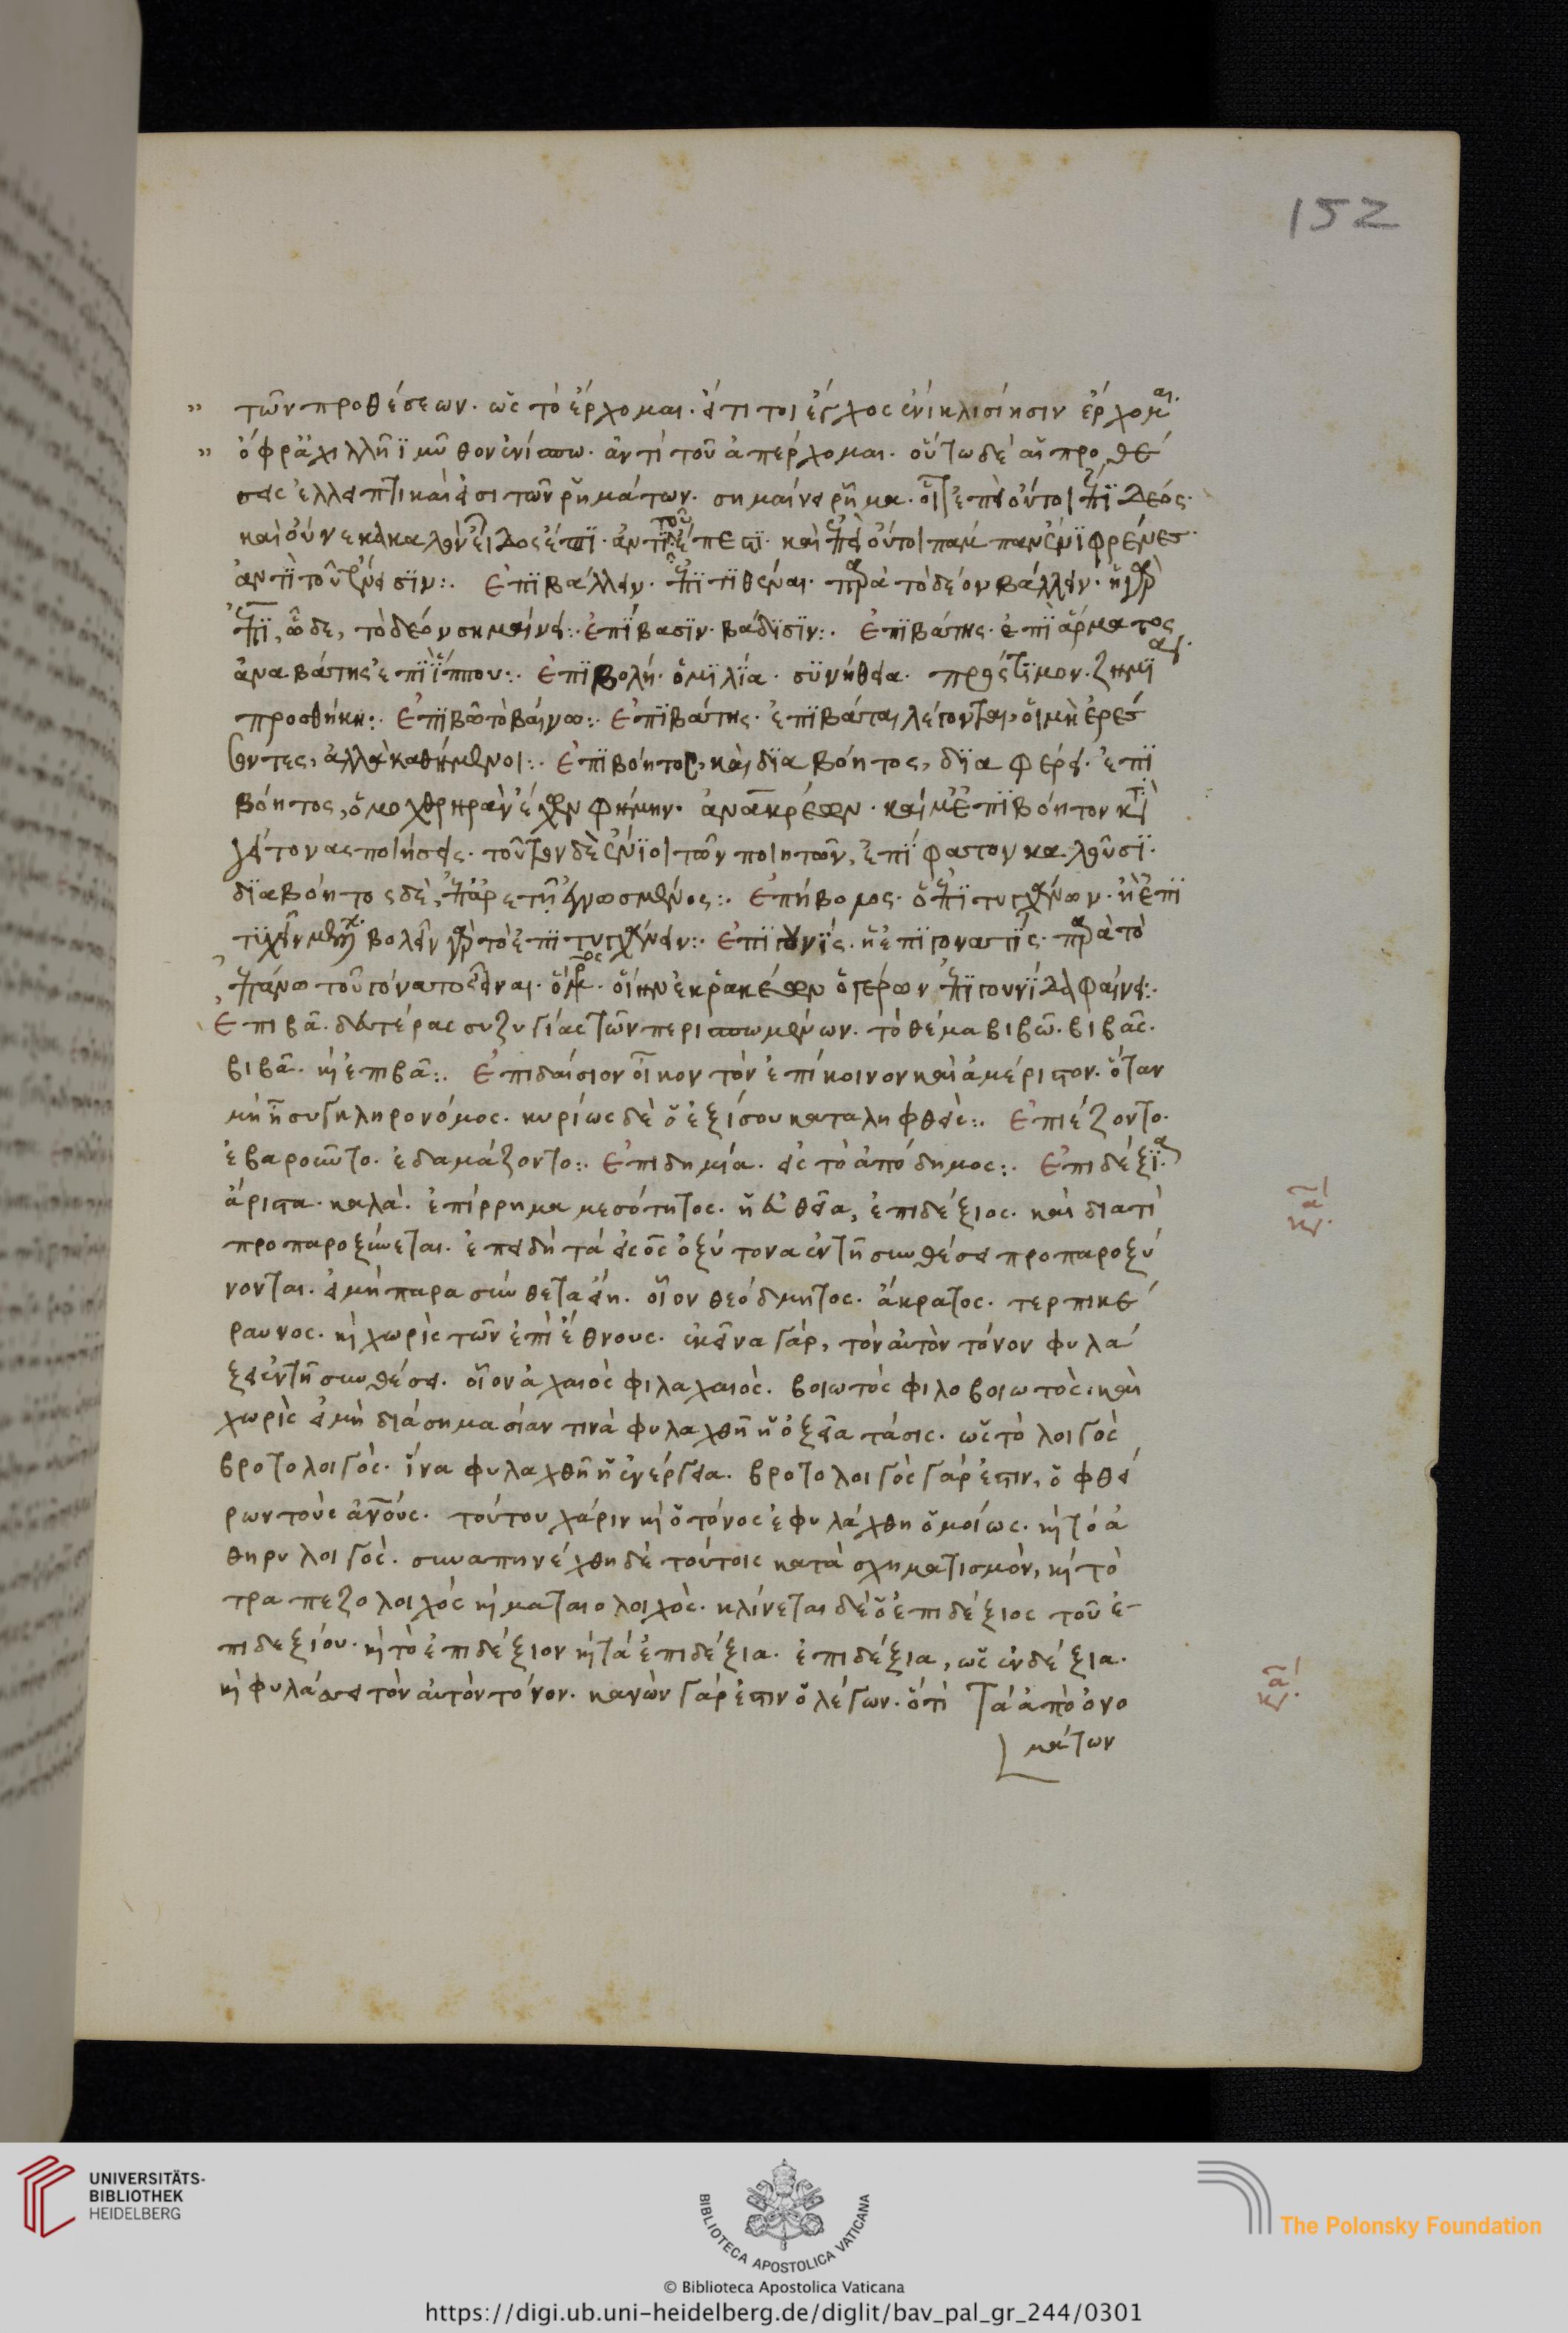 152
τῶν προθέσεων. ὡς τὸ ἔρχομαι. εἴ τι τοι ἔγχος ἐνὶ κλισίῃσιν ἔρχομαι.
ὄφρ' ἀχιλλῆϊ μῦθον ἐνίσπω. ἀντὶ τοῦ ἀπέρχομαι. οὕτω δὲ αἱ προθέ
σεις ἐλλείπτικαὶ εἰσι τῶν ῥημάτων. σημαίνει ῥῆμα. ἐπεὶ οὔτοι ἔπι δέος.
καὶ οὕνεκα καλὸν εἶδος ἔπι. ἀντὶ τοῦ ἔπεστι. καὶ ἐπεὶ οὔτοι πάμπαν ἔνι φρένες.
ἀντὶ τοῦ ἔνεισιν:. Ἐπιβάλλειν. ἐπιτιθέναι. παρὰ τὸ δέον βάλλειν. ἡ γὰρ
ἐπὶ, ὧδε, τὸ δέον σημαίνει:. ἐπίβασιν. βάδισιν:. Ἐπιβάτης. ἐπὶ ἅρματος
ἀναβάτης ἐπὶ ἵππου:. Ἐπιβολή. ὁμιλία. συνήθεια. πρόστιμον. ζημία.
προσθήκη:. Ἐπιβῶ τὸ βαίνω:. Ἐπιβάτης. ἐπιβάται λέγονται, οἱ μὴ ἐρέσ
σοντες, ἀλλὰ καθήμενοι:. Ἐπιβόητος, καὶ διαβόητος, διαφέρει. ἐπι
βόητος, ὁ μοχθηρὰν ἔχων φήμην. ἀνακρέων. καί μ' ἐπιβόητον κατὰ
γείτονας ποιήσεις. τοῦτον δὲ ἔνιοι τῶν ποιητῶν, ἐπίφαστον καλοῦσι.
διαβόητος δὲ, ἐπ' ἀρετῇ ἐγνωσμένος:. Ἐπήβολος. ὁ ἐπιτυγχάνων. ἢ ἐπι
τυχὴν βολεῖν γὰρ τὸ ἐπιτυγχάνειν:. Ἐπιγουνίς. ἡ ἐπιγονατίς. παρὰ τὸ
ἐπάνω τοῦ γόνατος εἶναι. ὅμηρος. οἵην ἐκ ῥακέων ὁ γέρων ἐπιγουνίδα φαίνει:.
Ἐπιβᾶ. δευτέρας συζυγίας τῶν περισπωμένων. τὸ θέμα βιβῶ. βιβᾶς.
βιβᾶ. καὶ ἐπιβᾶ:. Ἐπιδαίσιον οἶκον τὸν ἐπίκοινον καὶ ἀμέριστον. ὅταν
μὴ ᾖ συγκληρονόμος. κυρίως δὲ ὁ ἐξίσου καταληφθείς:. Ἐπιέζοντο.
ἐβαροῦντο. ἐδαμάζοντο:. Ἐπιδημία. εἰς τὸ ἀπόδημος:. Ἐπιδέξια.
ἄριστα. καλά. ἐπίρρημα μεσότητος. ἡ εὐθεῖα, ἐπιδέξιος. καὶ διατὶ
προπαροξύνεται. ἐπειδὴ τὰ εἰς ος ὀξύτονα ἐν τῇ συνθέσει προπαροξύ
νονται. εἰ μὴ παρασύνθετα εἴη. οἷον θεόδμητος. ἄκρατος. τερπικέ
ραυνος. καὶ χωρὶς τῶν ἐπὶ ἔθνους. ἐκεῖνα γὰρ, τὸν αὐτὸν τόνον φυλά
ξει ἐν τῇ συνθέσει. οἷον ἀχαιὸς φιλαχαιός. βοιωτὸς φιλοβοιωτός. καὶ
χωρὶς εἰ μὴ διὰ σημασίαν τινὰ φυλαχθῇ ἡ ὀξεῖα τάσις. ὡς τὸ λοιγὸς
βροτολοιγός. ἵνα φυλαχθῇ ἡ ἐνέργεια. βροτολοιγὸς γάρ ἐστιν, ὁ φθεί
ρων τοὺς ἀνους. τούτου χάριν καὶ ὁ τόνος ἐφυλάχθη ὁμοίως. καὶ τὸ ἀ
θηρυλοιγός. συναπηνέχθη δὲ τούτοις κατὰ σχηματισμὸν, καὶ τὸ
τραπεζολοιχός καὶ ματαιολοιχός. κλίνεται δὲ ὁ ἐπιδέξιος τοῦ ἐ-
πιδεξίου. καὶ τὸ ἐπιδέξιον καὶ τὰ ἐπιδέξια. ἐπιδέξια, ὡς ἐνδέξια.
καὶ φυλάσσει τὸν αὐτὸν τόνον. κανὼν γάρ ἐστιν ὁ λέγων. ὅτι Τὰ ἀπὸ ὀνο
μάτων
UNIVERSITÄTS-
BIBLIOTHEK
HEIDELBERG
BIBLIOTECA APOSTOLICA VATICANA
The Polonsky Foundation
© Biblioteca Apostolica Vaticana
https://digi.ub.uni-heidelberg.de/diglit/bav_pal_gr_244/0301